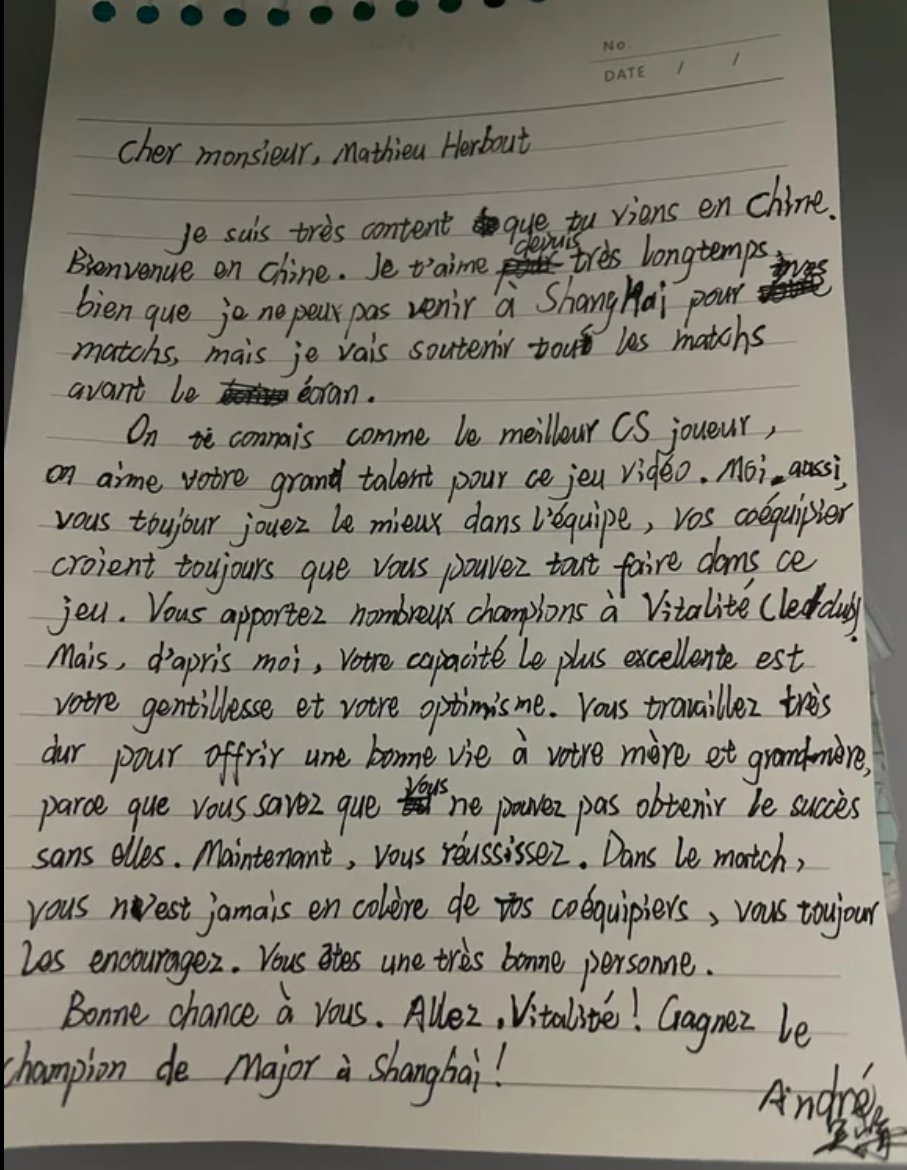 No.
DATE / /
Cher monsieur, Mathieu Herbaut
Je suis très content que tu viens en Chine.
Bienvenue en Chine. Je t'aime depuis très longtemps,
bien que je ne peux pas venir à ShangHai pour
matchs, mais je vais soutenir tous les matchs
avant le écran.
On te connais comme le meilleur CS joueur,
on aime votre grand talent pour ce jeu vidéo. Moi aussi,
vous toujour jouez le mieux dans l'équipe, vos coéquipier
croient toujours que vous pouvez tout faire dans ce
jeu. Vous apportez nombreux champions à Vitalité (le club).
Mais, d'apris moi, votre capacité le plus excellente est
votre gentillesse et votre optimisme. Vous travaillez très
dur pour offrir une bonne vie à votre mère et grand-mère,
parce que vous savez que vous ne pouvez pas obtenir le succès
sans elles. Maintenant, vous réussissez. Dans le match,
vous n'est jamais en colère de vos coéquipiers, vous toujour
les encouragez. Vous êtes une très bonne personne.
Bonne chance à vous. Allez, Vitalité! Gagnez le
champion de Major à Shanghai!
André